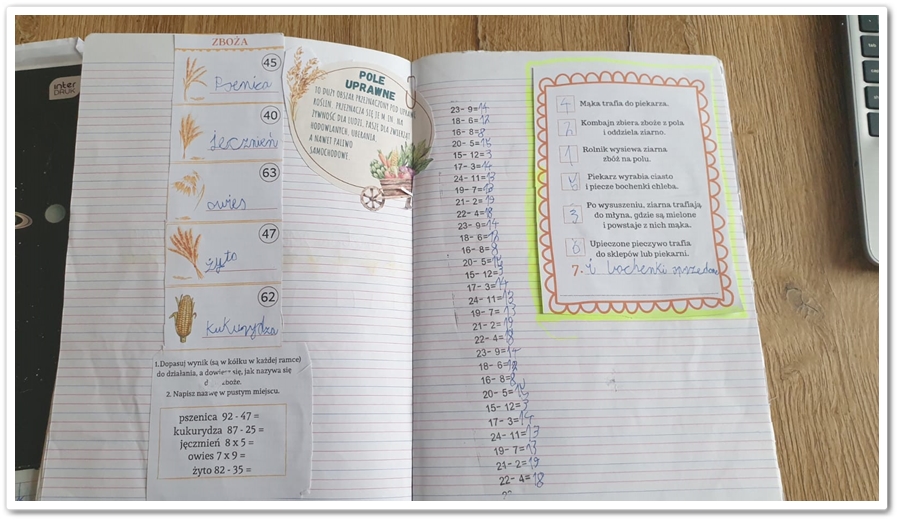 inter
DRUK
ZBOŻA
45
Pszenica
40
jęczmień
63
owies
47
żyto
62
kukurydza
1. Dopasuj wynik (są w kółku w każdej ramce)
do działania, a dowiesz się, jak nazywa się
zboże.
2. Napisz nazwę w pustym miejscu.
pszenica 92 - 47 =
kukurydza 87 - 25 =
jęczmień 8 x 5 =
owies 7 x 9 =
żyto 82 - 35 =
POLE
UPRAWNE
TO DUŻY OBSZAR PRZEZNACZONY POD UPRAWĘ
ROŚLIN. PRZEZNACZA SIĘ JE M.IN. NA
ŻYWNOŚĆ DLA LUDZI, PASZĘ DLA ZWIERZĄT
HODOWLANYCH, UBRANIA,
A NAWET PALIWO
SAMOCHODOWE.
23- 9=14
18- 6=12
16- 8=8
20- 5=15
15- 12=3
17- 3=14
24- 11=13
19- 7=
21- 2=19
22- 4=18
23- 9=14
18- 6=
16- 8=8
20- 5=15
15- 12=3
17- 3=14
24- 11=13
19- 7=13
21- 2=19
22- 4=18
23- 9=14
18- 6=12
16- 8=8
20- 5=15
15- 12=3
17- 3=14
24- 11=13
19- 7=13
21- 2=19
22- 4=18
4 Mąka trafia do piekarza.
2 Kombajn zbiera zboże z pola
i oddziela ziarno.
1 Rolnik wysiewa ziarna
zbóż na polu.
Piekarz wyrabia ciasto
i piecze bochenki chleba.
3 Po wysuszeniu, ziarna trafiają
do młyna, gdzie są mielone
i powstaje z nich mąka.
6 Upieczone pieczywo trafia
do sklepów lub piekarni.
7. i bochenki sprzedane